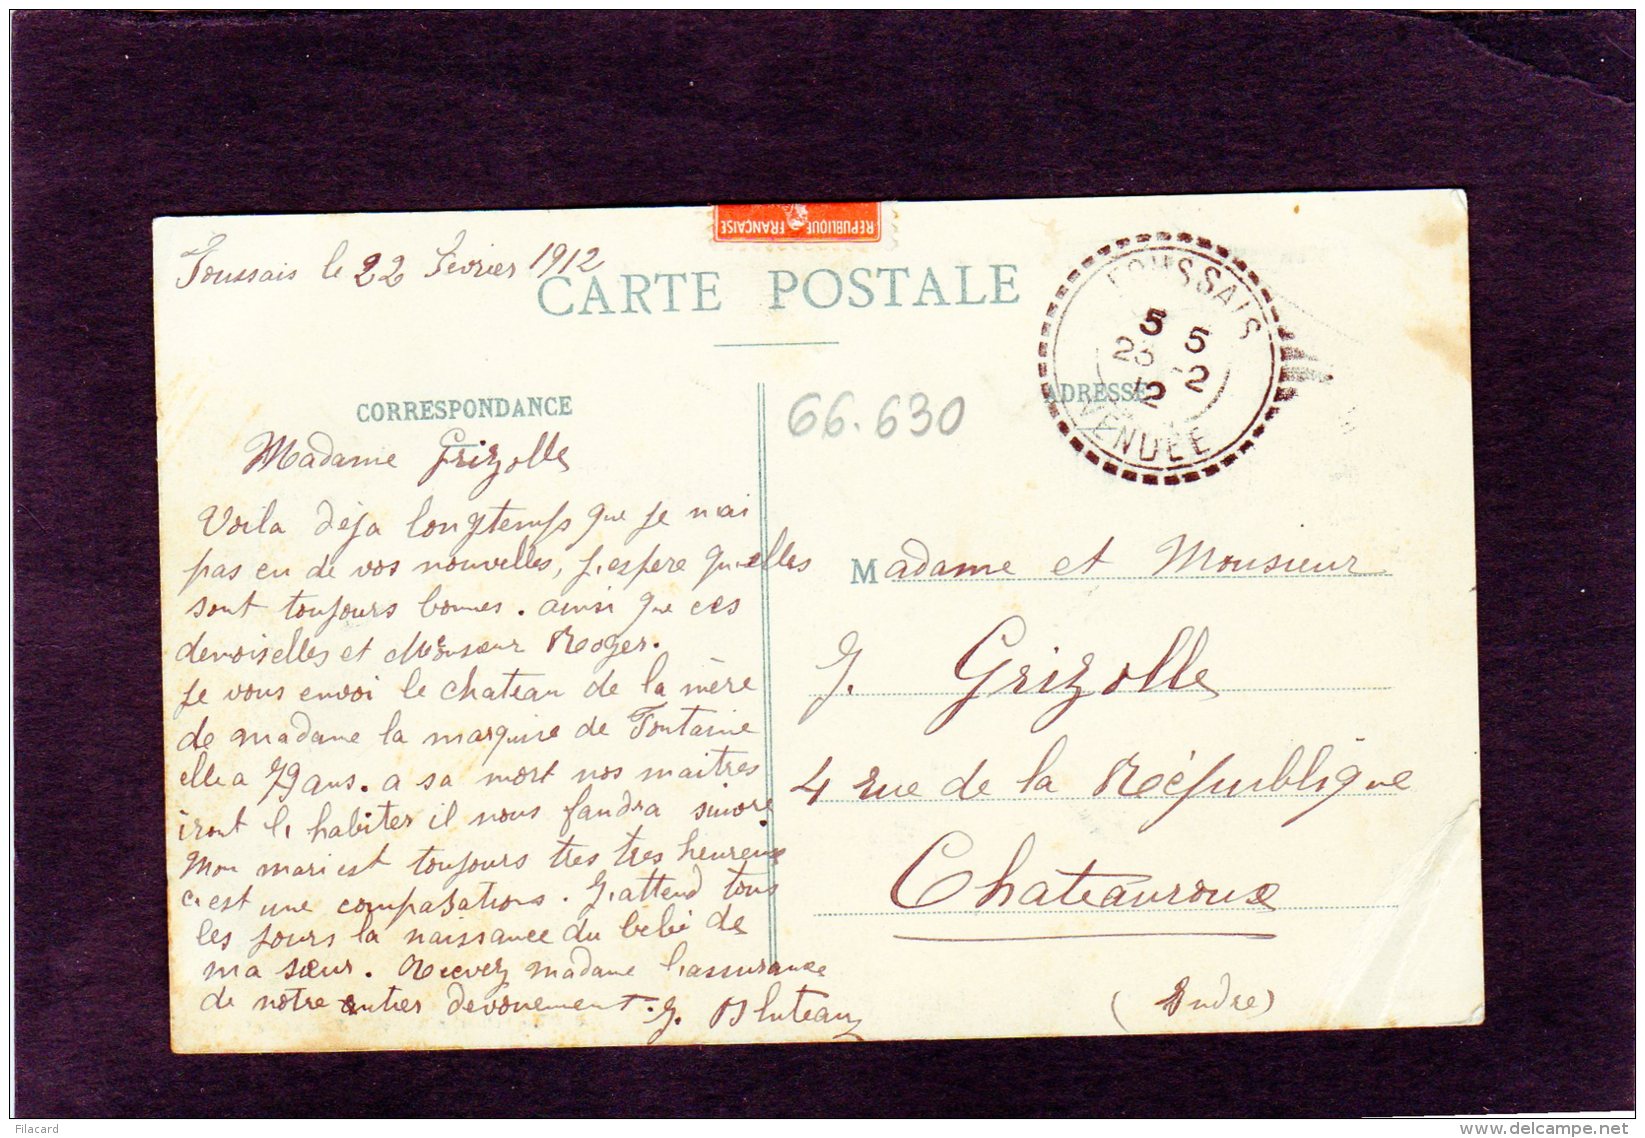 Foussais le 22 Février 1912
REPUBLIQUE FRANÇAISE
CARTE POSTALE
CORRESPONDANCE
Madame Grizolle
Voila déja longtemps que je n'ai
pas eu de vos nouvelles, j'espere qu'elles
sont toujours bonnes. ainsi que ces
demoiselles et Monsieur Roger.
je vous envoi le chateau de la mère
de madame la marquise de Fontaine
elle a 79 ans. a sa mort nos maitres
iront l'habiter il nous faudra suivre
Mon mari est toujours tres tres heureux
c'est une compasations. J'attend tous
les jours la naissance du bébé de
ma sœur. Recevez madame l'assurance
de notre entier devouement. J. Bluteau
66.630
FOUSSAIS
5 5
23 2
12
VENDÉE
ADRESSE
Madame et Monsieur
J. Grizolle
4 rue de la République
Chateauroux
(Indre)
Filacard
www.delcampe.net